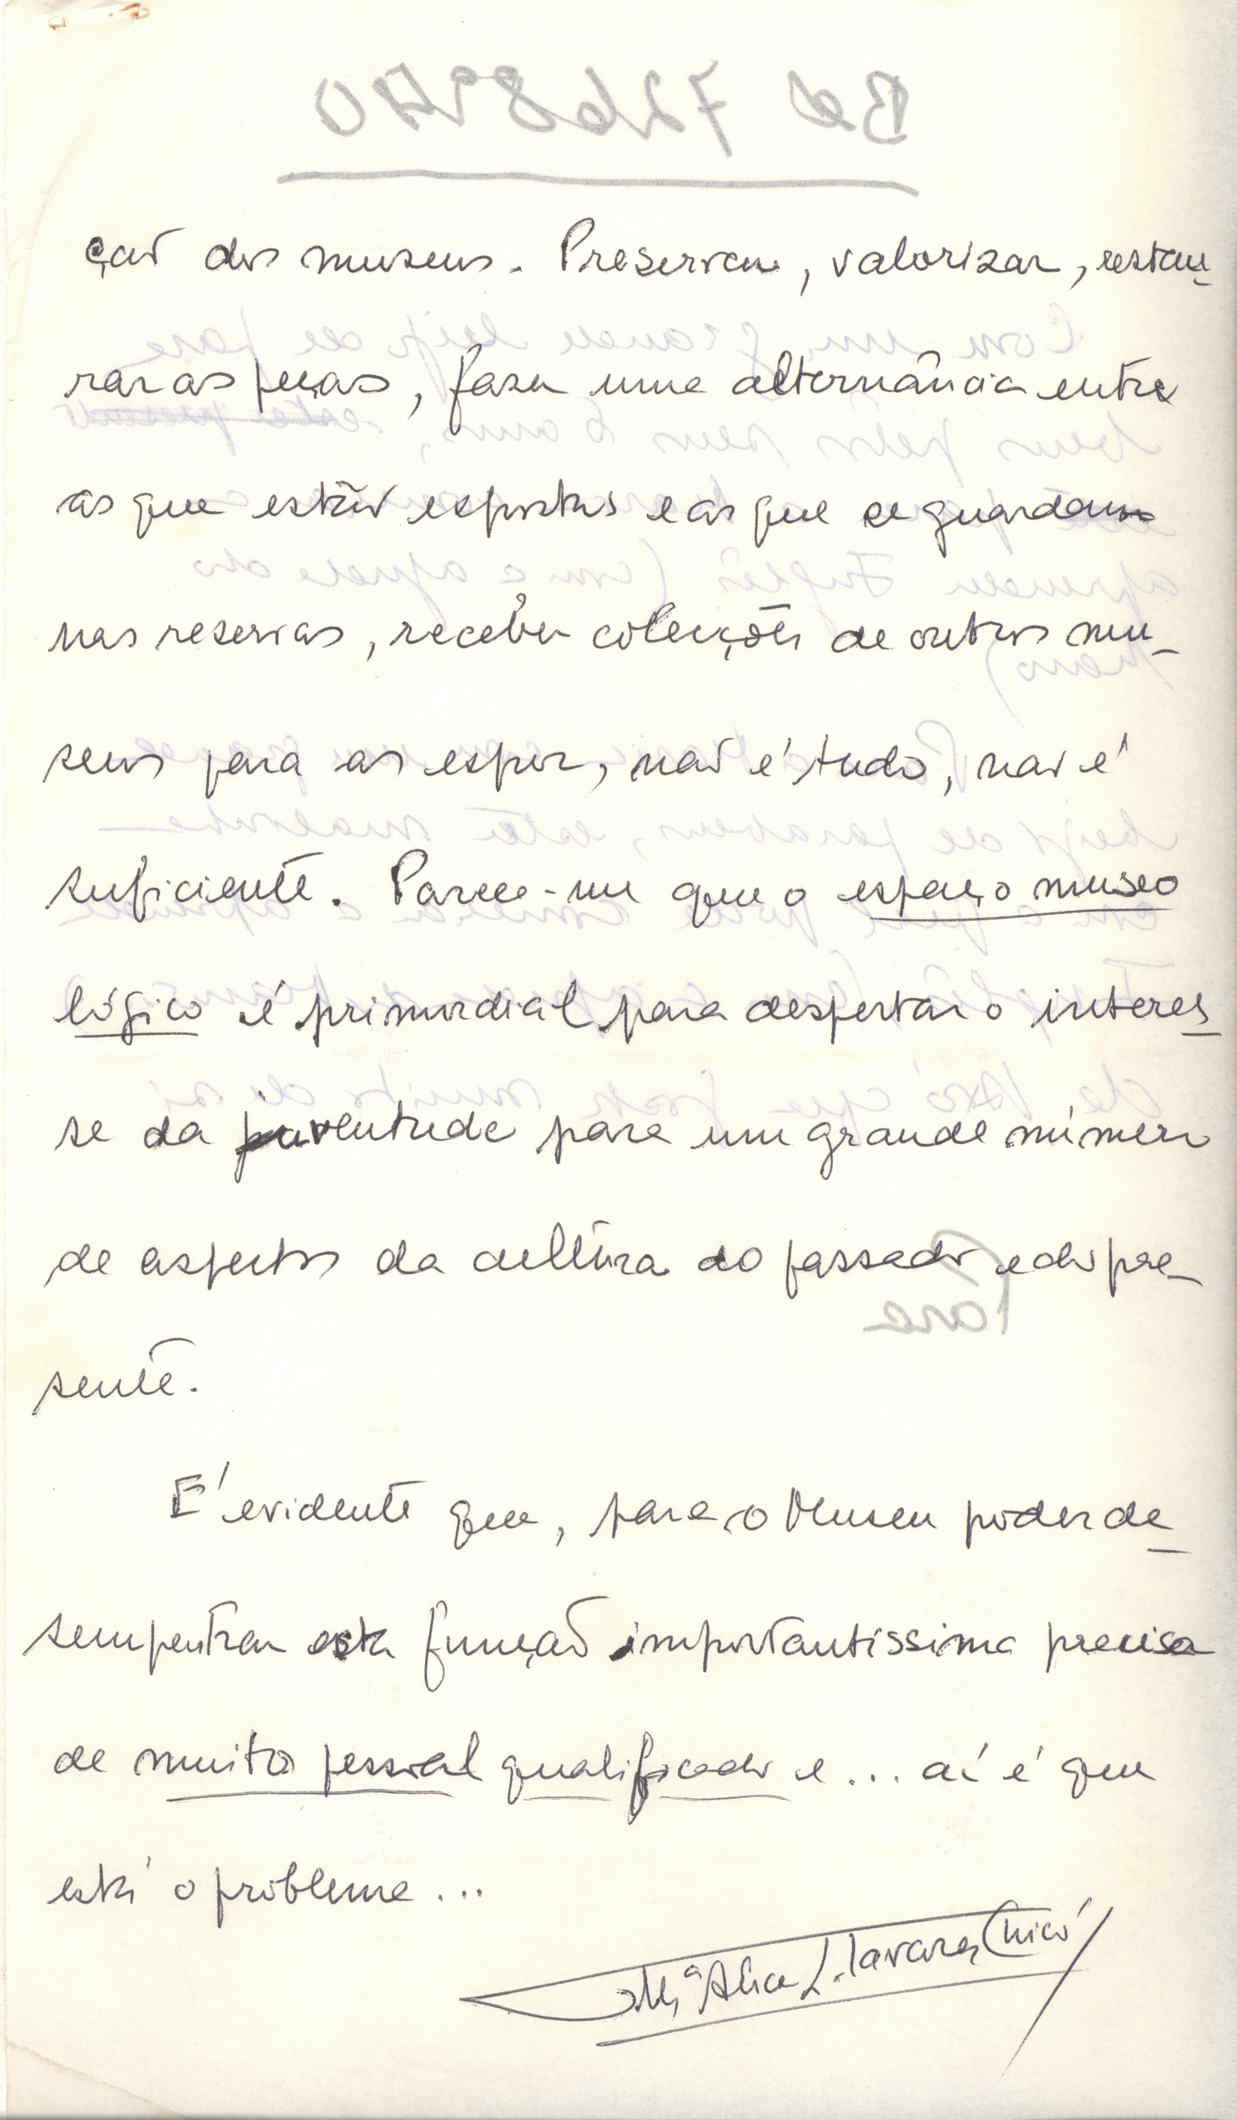 ção dos museus. Preservar, valorizar, restau-
rar as peças, fazer uma alternância entre
as que estão expostas e as que se guardam
nas reservas, receber colecções de outros mu-
seus para as expor, não é tudo, não é
suficiente. Parece-me que o espaço museo
lógico é primordial para despertar o interes-
se da juventude para um grande número
de aspectos da cultura do passado e do pre-
sente.
É evidente que, para o Museu poder de-
sempenhar esta função importantissima precisa
de muito pessoal qualificado e... aí é que
está o problema...
Mª Alice L. Tavares Chicó